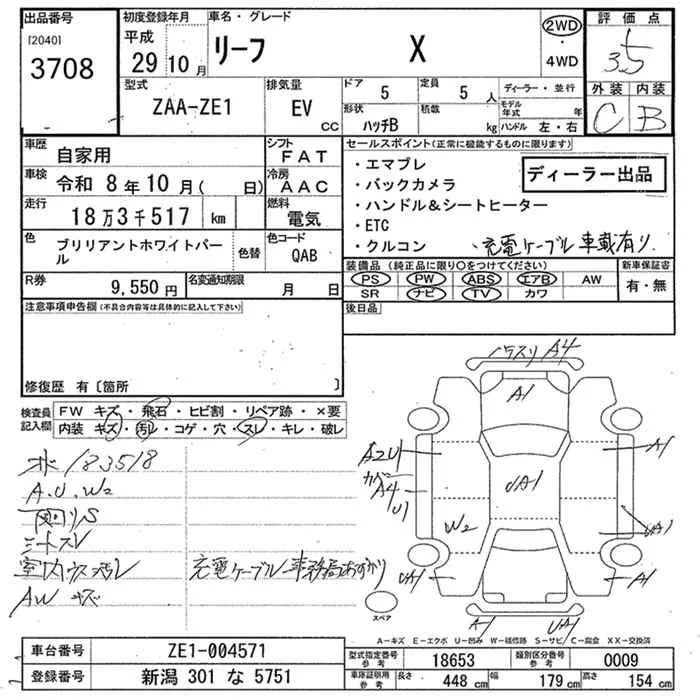 出品番号
[2040]
3708
初度登録年月
平成
29 10月
車名・グレード
リーフ X
2WD
・
4WD
評価点
3.5
外装 内装
C B
型式
ZAA-ZE1
排気量
EV
cc
ドア 5
定員 5 人
形状 ハッチB
積載 kg
ディーラー・並行
モデル年式 年
ハンドル 左・右
車歴 自家用
シフト FAT
車検 令和 8年10月( 日)
冷房 AAC
走行 18万3千517 km
燃料 電気
色 ブリリアントホワイトパール
色替
色コード QAB
R券 9,550円
名変通知期限 月 日
セールスポイント(正常に機能するものに限ります)
・エマブレ
・バックカメラ
・ハンドル&シートヒーター
・ETC
・クルコン
ディーラー出品
・充電ケーブル車載有り
装備品(純正品に限り○をつけてください)
PS PW ABS エアB AW
SR ナビ TV カワ
新車保証書
有・無
後日品
注意事項申告欄(不具合内容等は具体的に記入して下さい)
修復歴 有〔箇所 〕
検査員記入欄
FW キズ・飛石・ヒビ割・リペア跡・×要
内装 キズ・汚レ・コゲ・穴・スレ・キレ・破レ
183518
A.U.W2
シートスレ
室内ウス汚レ
AW キズ
充電ケーブル車務局あずかり
バラスリ A4
A1
A2U1
カバー
A4
U1
A1
UA1
W2
UA1
UA1
A1
A1
UA1
スペア
A-キズ E-エクボ U-凹み W-補修跡 S-サビ C-腐食 XX-交換済
車台番号 ZE1-004571
登録番号 新潟 301 な 5751
型式指定番号 参考 18653
類別区分番号 参考 0009
車庫証明用 参考
長さ 448 cm
幅 179 cm
高さ 154 cm